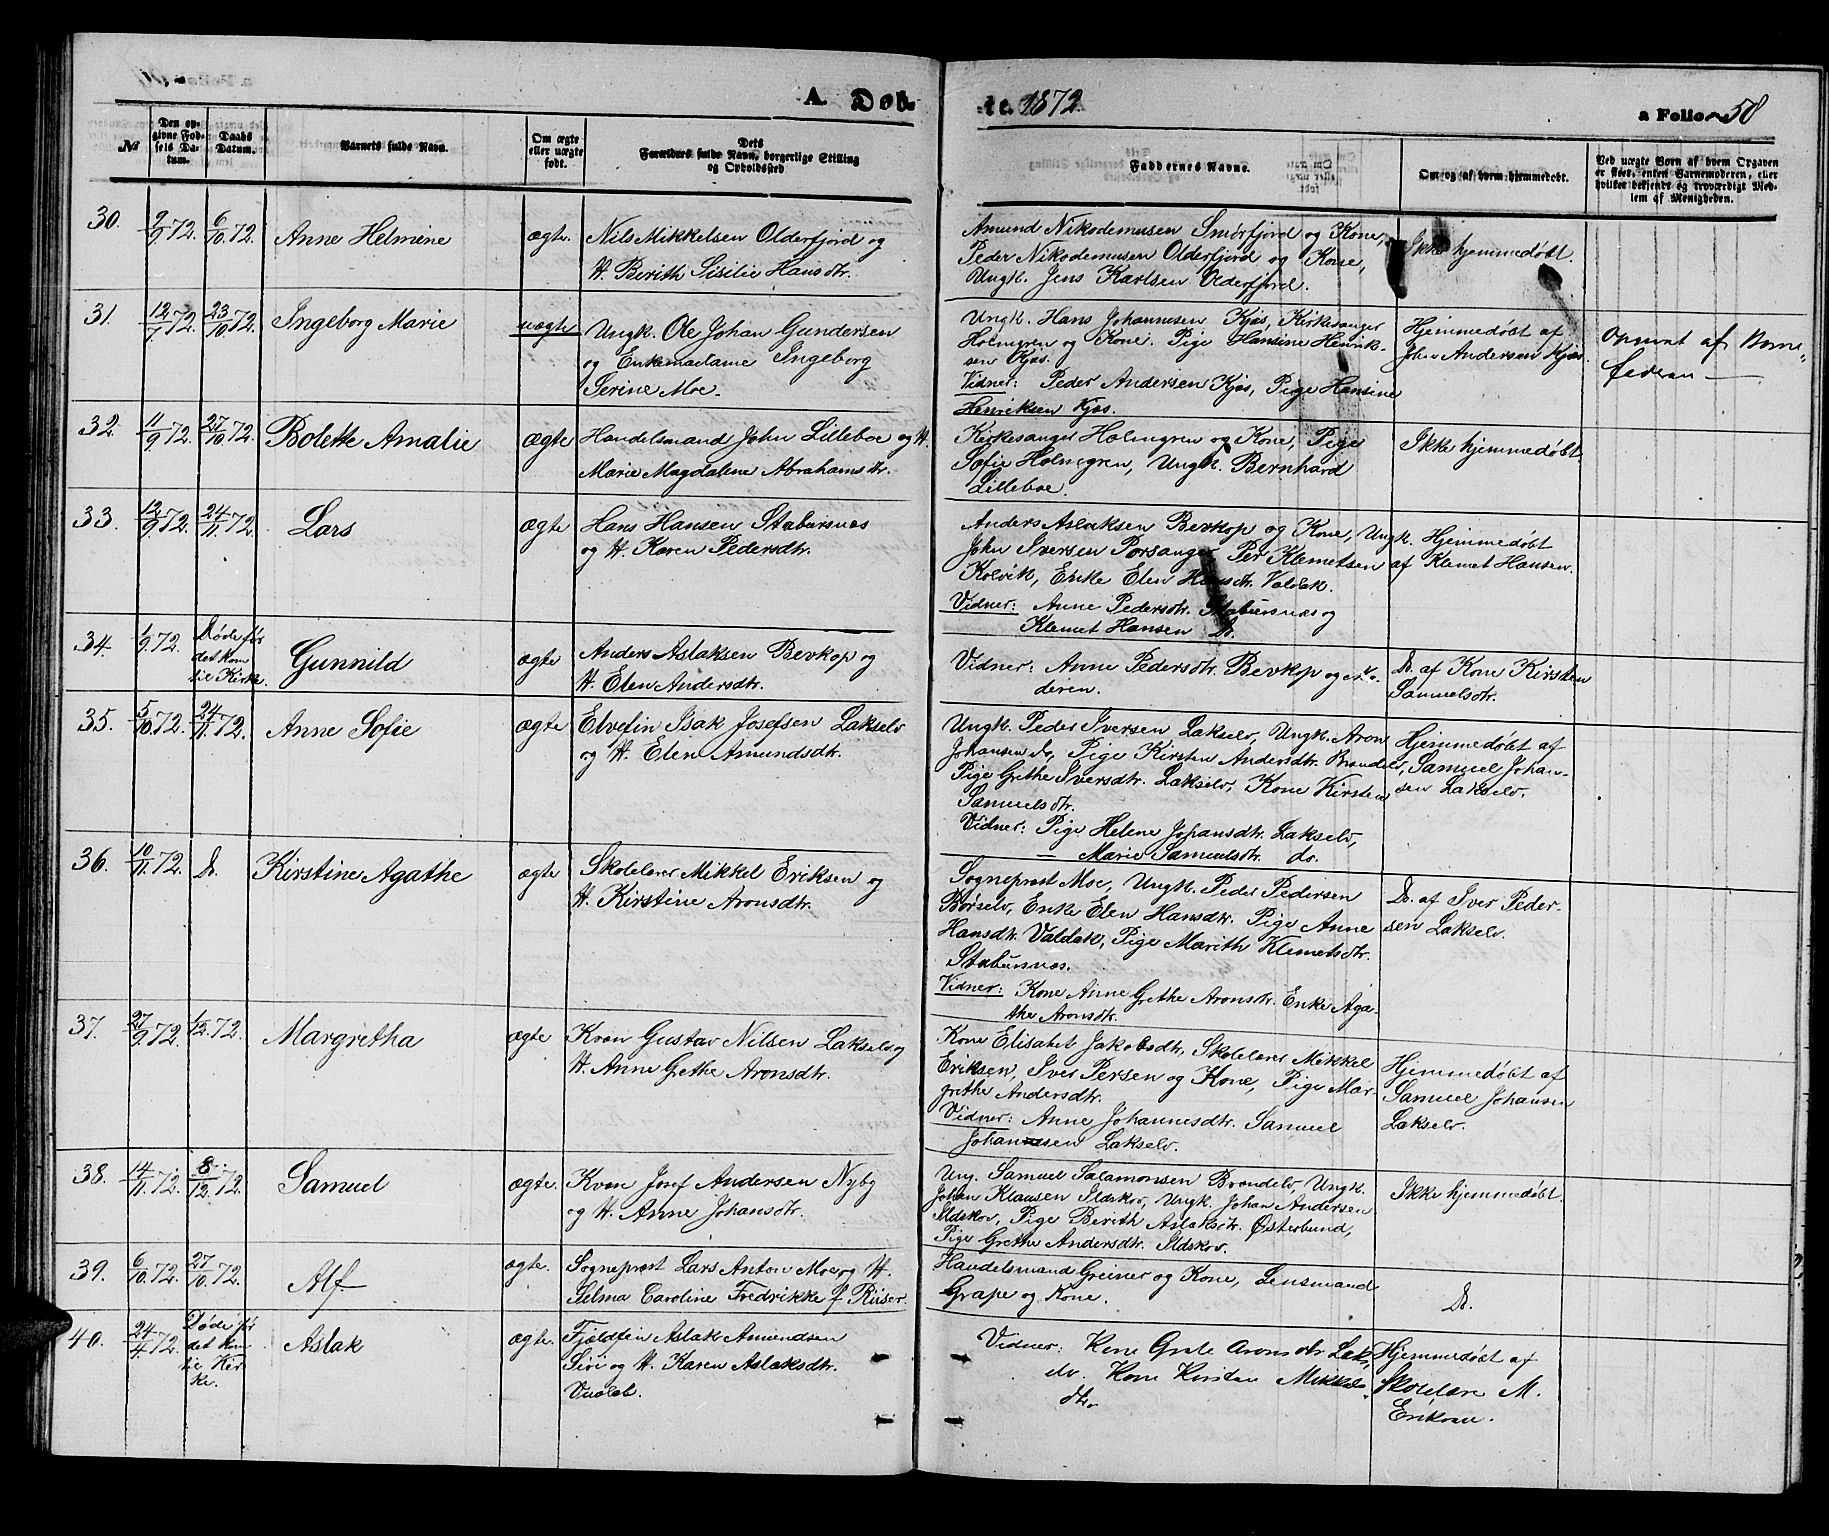 A. Døb-
te. 1872.
a Folio 58
№
Den opgivne Fødsels Datum.
Daabs Datum.
Barnets fulde Navn.
Om ægte eller uægte født.
Dets Forældres fulde Navn, borgerlige Stilling og Opholdssted
Faddernes Navne.
Om og af hvem hjemmedøbt.
Ved uægte Børn af hvem Opgaven er skeet, enten Barnemoderen, eller hvilket bekjendt og troværdigt Medlem af Menigheden.
30. 2/9 72. 6/10 72. Anne Helmine ægte. Nils Mikkelsen Olderfjord og
H. Berith Sisilie Hansdtr.
Amund Nikodemusen Smørfjord og Kone,
Peder Nikodemusen Olderfjord og Kone,
Ungk. Jens Karlsen Olderfjord.
Ikke hjemmedøbt.
31. 12/7 72. 23/10 72. Ingeborg Marie uægte Ungk. Ole Johan Gundersen
og Enkemadame Ingeborg
Serine Moe.
Ungk. Hans Johannesen Kjæs, Kirkesanger
Holmgren og Kone. Pige Hansine Henrik-
sen Kjæs.
Vidner: Peder Andersen Kjæs, Pige Hansine
Henriksen Kjæs.
Hjemmedøbt af
John Andersen Kjæs.
Opgivet af Barne-
faderen
32. 11/9 72. 27/10 72. Bolette Amalie ægte Handelsmand John Lilleboe og H.
Marie Magdalene Abrahamsdtr.
Kirkesanger Holmgren og Kone, Pige
Sofie Holmgren, Ungk. Bernhard
Lilleboe.
Ikke hjemmedøbt.
33. 12/9 72. 24/11 72. Lars ægte Hans Hansen Stabursnæs
og H. Karen Pedersdtr.
Anders Aslaksen Bevkop og Kone, Ungk.
John Iversen Porsanger, Per Klemetsen
Kolvik, Enke Elen Hansdtr. Valdak.
Vidner: Anne Pedersdtr. Stabursnæs og
Klemet Hansen Do.
Hjemmedøbt
af Klemet Hansen.
34. 1/9 72. Døde før
det kom
til Kirke. Gunnild ægte Anders Aslaksen Bevkop og
H. Elen Andersdtr.
Vidner: Anne Pedersdtr. Bevkop og Mo-
deren.
Do. af Kone Kirsten
Samuelsdtr.
35. 5/10 72. 24/11 72. Anne Sofie ægte Elvefin Isak Josefsen Lakselv
og H. Elen Amundsdtr.
Ungk. Peder Iversen Lakselv, Ungk. Aron
Johansen do, Pige Kirsten Andersdtr. Brandelv,
Pige Grethe Iversdtr. Lakselv, Kone Kirsten
Samuelsdtr.
Vidner: Pige Helene Johansdtr. Lakselv,
— Marie Samuelsdtr. do.
Hjemmedøbt af
Samuel Johan-
sen Lakselv.
36. 10/11 72. Do. Kirstine Agathe ægte Skolelærer Mikkel Eriksen og
H. Kirstine Aronsdtr.
Sogneprest Moe, Ungk. Peder Pedersen
Børselv, Enke Elen Hansdtr. Pige Anne
Hansdtr. Valdak, Pige Marith Klemetsdtr.
Stabursnæs.
Vidner: Kone Anne Grethe Aronsdtr. Enke Aga-
the Aronsdtr.
Do. af Iver Peder-
sen Lakselv.
37. 27/9 72. 1/12 72. Margretha ægte Kvæn Gustav Nilsen Lakselv og
H. Anne Grethe Aronsdtr.
Kone Elisabet Jakobsdtr, Skolelærer Mikkel
Eriksen, Iver Persen og Kone, Pige Mar-
grethe Andersdtr.
Vidner: Anne Johannesdtr. Samuel
Johansen Lakselv.
Hjemmedøbt af
Samuel Johansen
Lakselv.
38. 14/11 72. 8/12 72. Samuel ægte. Kvæn Josef Andersen Nyby
og H. Anne Johansdtr.
Ung. Samuel Salamonsen Brandelv, Ungk.
Johan Klausen Ildskov, Ungk. Johan Andersen
Ildskov, Pige Berith Aslaksdtr. Østerbund,
Pige Grethe Andersdtr. Ildskov.
Ikke hjemmedøbt.
39. 6/10 72. 27/10 72. Alf ægte. Sogneprest Lars Anton Moe og H.
Selma Caroline Fredrikke f. Riiser.
Handelsmand Greiner og Kone, Lensmand
Grape og Kone.
Do.
40. 24/4 72. Døde før
det kom
til Kir-
ke. Aslak ægte. Fjeldfin Aslak Amundsen
Siri og H. Karen Aslaksdtr.
Vidner: Kone Grete Aronsdtr Laks-
elv. Kone Kirsten Mikkels-
dtr
Hjemmedøbt af
Skolelærer M.
Eriksen.